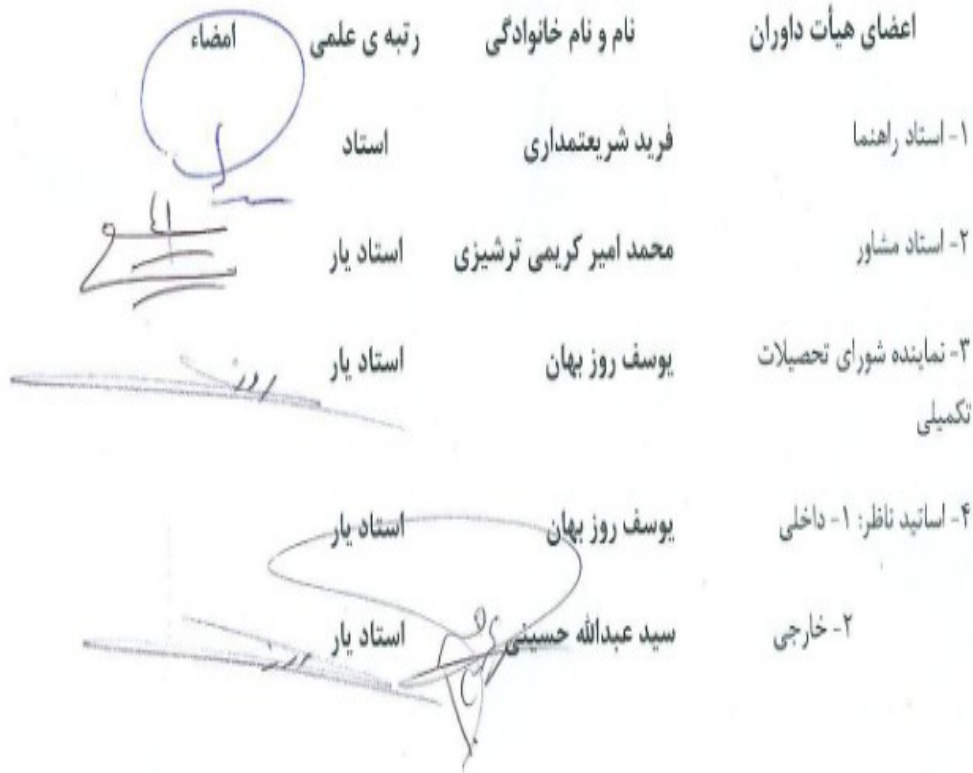 اعضای هیأت داوران نام و نام خانوادگی رتبه ی علمی امضاء
۱- استاد راهنما فرید شریعتمداری استاد
۲- استاد مشاور محمد امیر کریمی ترشیزی استاد یار
۳- نماینده شورای تحصیلات یوسف روز بهان استاد یار
تکمیلی
۴- اساتید ناظر: ۱- داخلی یوسف روز بهان استاد یار
۲- خارجی سید عبدالله حسینی استاد یار